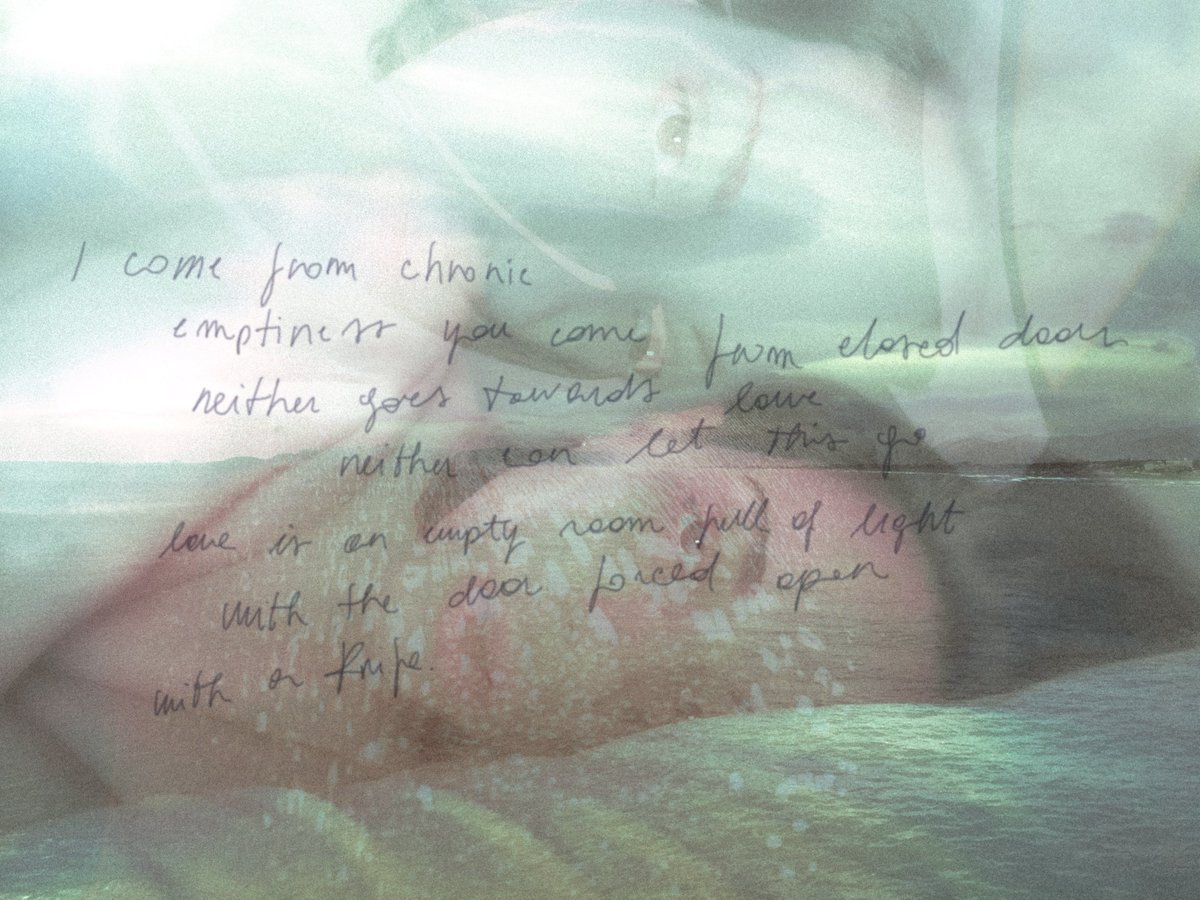 I come from chronic
emptiness you come from closed doors
neither goes towards love
neither can let this go
love is an empty room full of light
with the door forced open
with a knife.